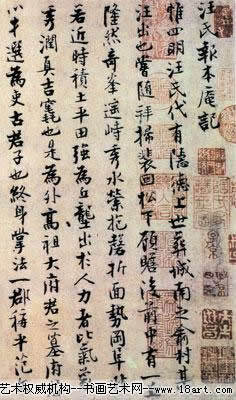 汪氏報本庵記
惟四明汪氏代有隱德上世葬城南之俞村
汪出也嘗隨拜掃裴回松下顧瞻後前中有一
隆然奇峯遥峙秀水縈抱磬折面勢岡阜
若近時積土平田強為丘壟出於人力者比氣
秀潤真吉竁也是為外高祖大府君之墓府
以半選為吏古君子也終身掌法一郡稱平范
艺术权威机构--书画艺术网--www.18art.com